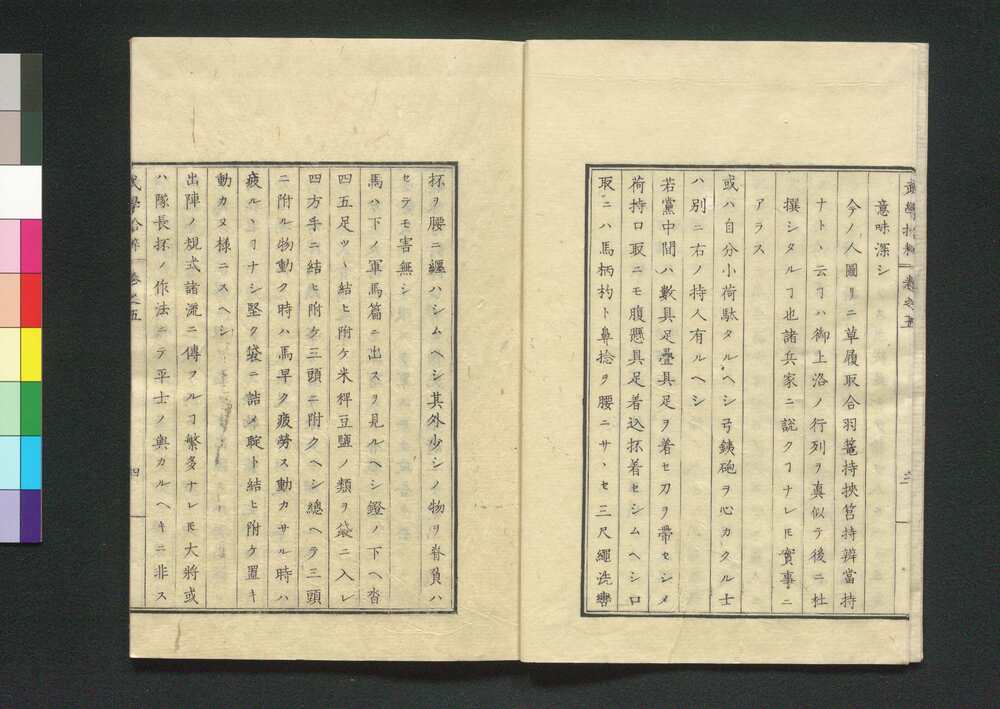 武學拾粹 卷之五
三
意味深シ
今ノ人圖リニ草履取合羽篭持挾筥持辨當持
ナトヽ云ヿハ御上洛ノ行列ヲ真似テ後ニ杜
撰シタルヿ也諸兵家ニ說クヿナレ𪜈實事ニ
アラス
或ハ自分小荷駄タルヘシ弓銕砲ヲ心カクル士
ハ別ニ右ノ持人有ルヘシ
若黨中間ハ數具足疊具足ヲ着セ刀ヲ帶セシメ
荷持口取ニモ腹懸具足着込抔着セシムヘシ口
取ニハ馬柄杓ト鼻捻ヲ腰ニサヽセ三尺繩洗轡
抔ヲ腰ニ纏ハシムヘシ其外少シノ物ヲ脊負ハ
セテモ害無シ
馬ハ下ノ軍馬篇ニ出スヲ見ルヘシ鐙ノ下ヘ沓
四五足ツヽ結ヒ附ケ米稈豆鹽ノ類ヲ袋ニ入レ
四方手ニ結ヒ附ケ三頭ニ附クヘシ總ヘテ三頭
ニ附ル物動ク時ハ馬早ク疲勞ス動カサル時ハ
疲ルヽヿナシ堅ク袋ニ詰メ聢ト結ヒ附ケ置キ
動カヌ樣ニスヘシ
出陣ノ規式諸流ニ傳フルヿ繁多ナレ𪜈大將或
ハ隊長抔ノ作法ニテ平士ノ與カルヘキニ非ス
武學拾粹 卷之五
四